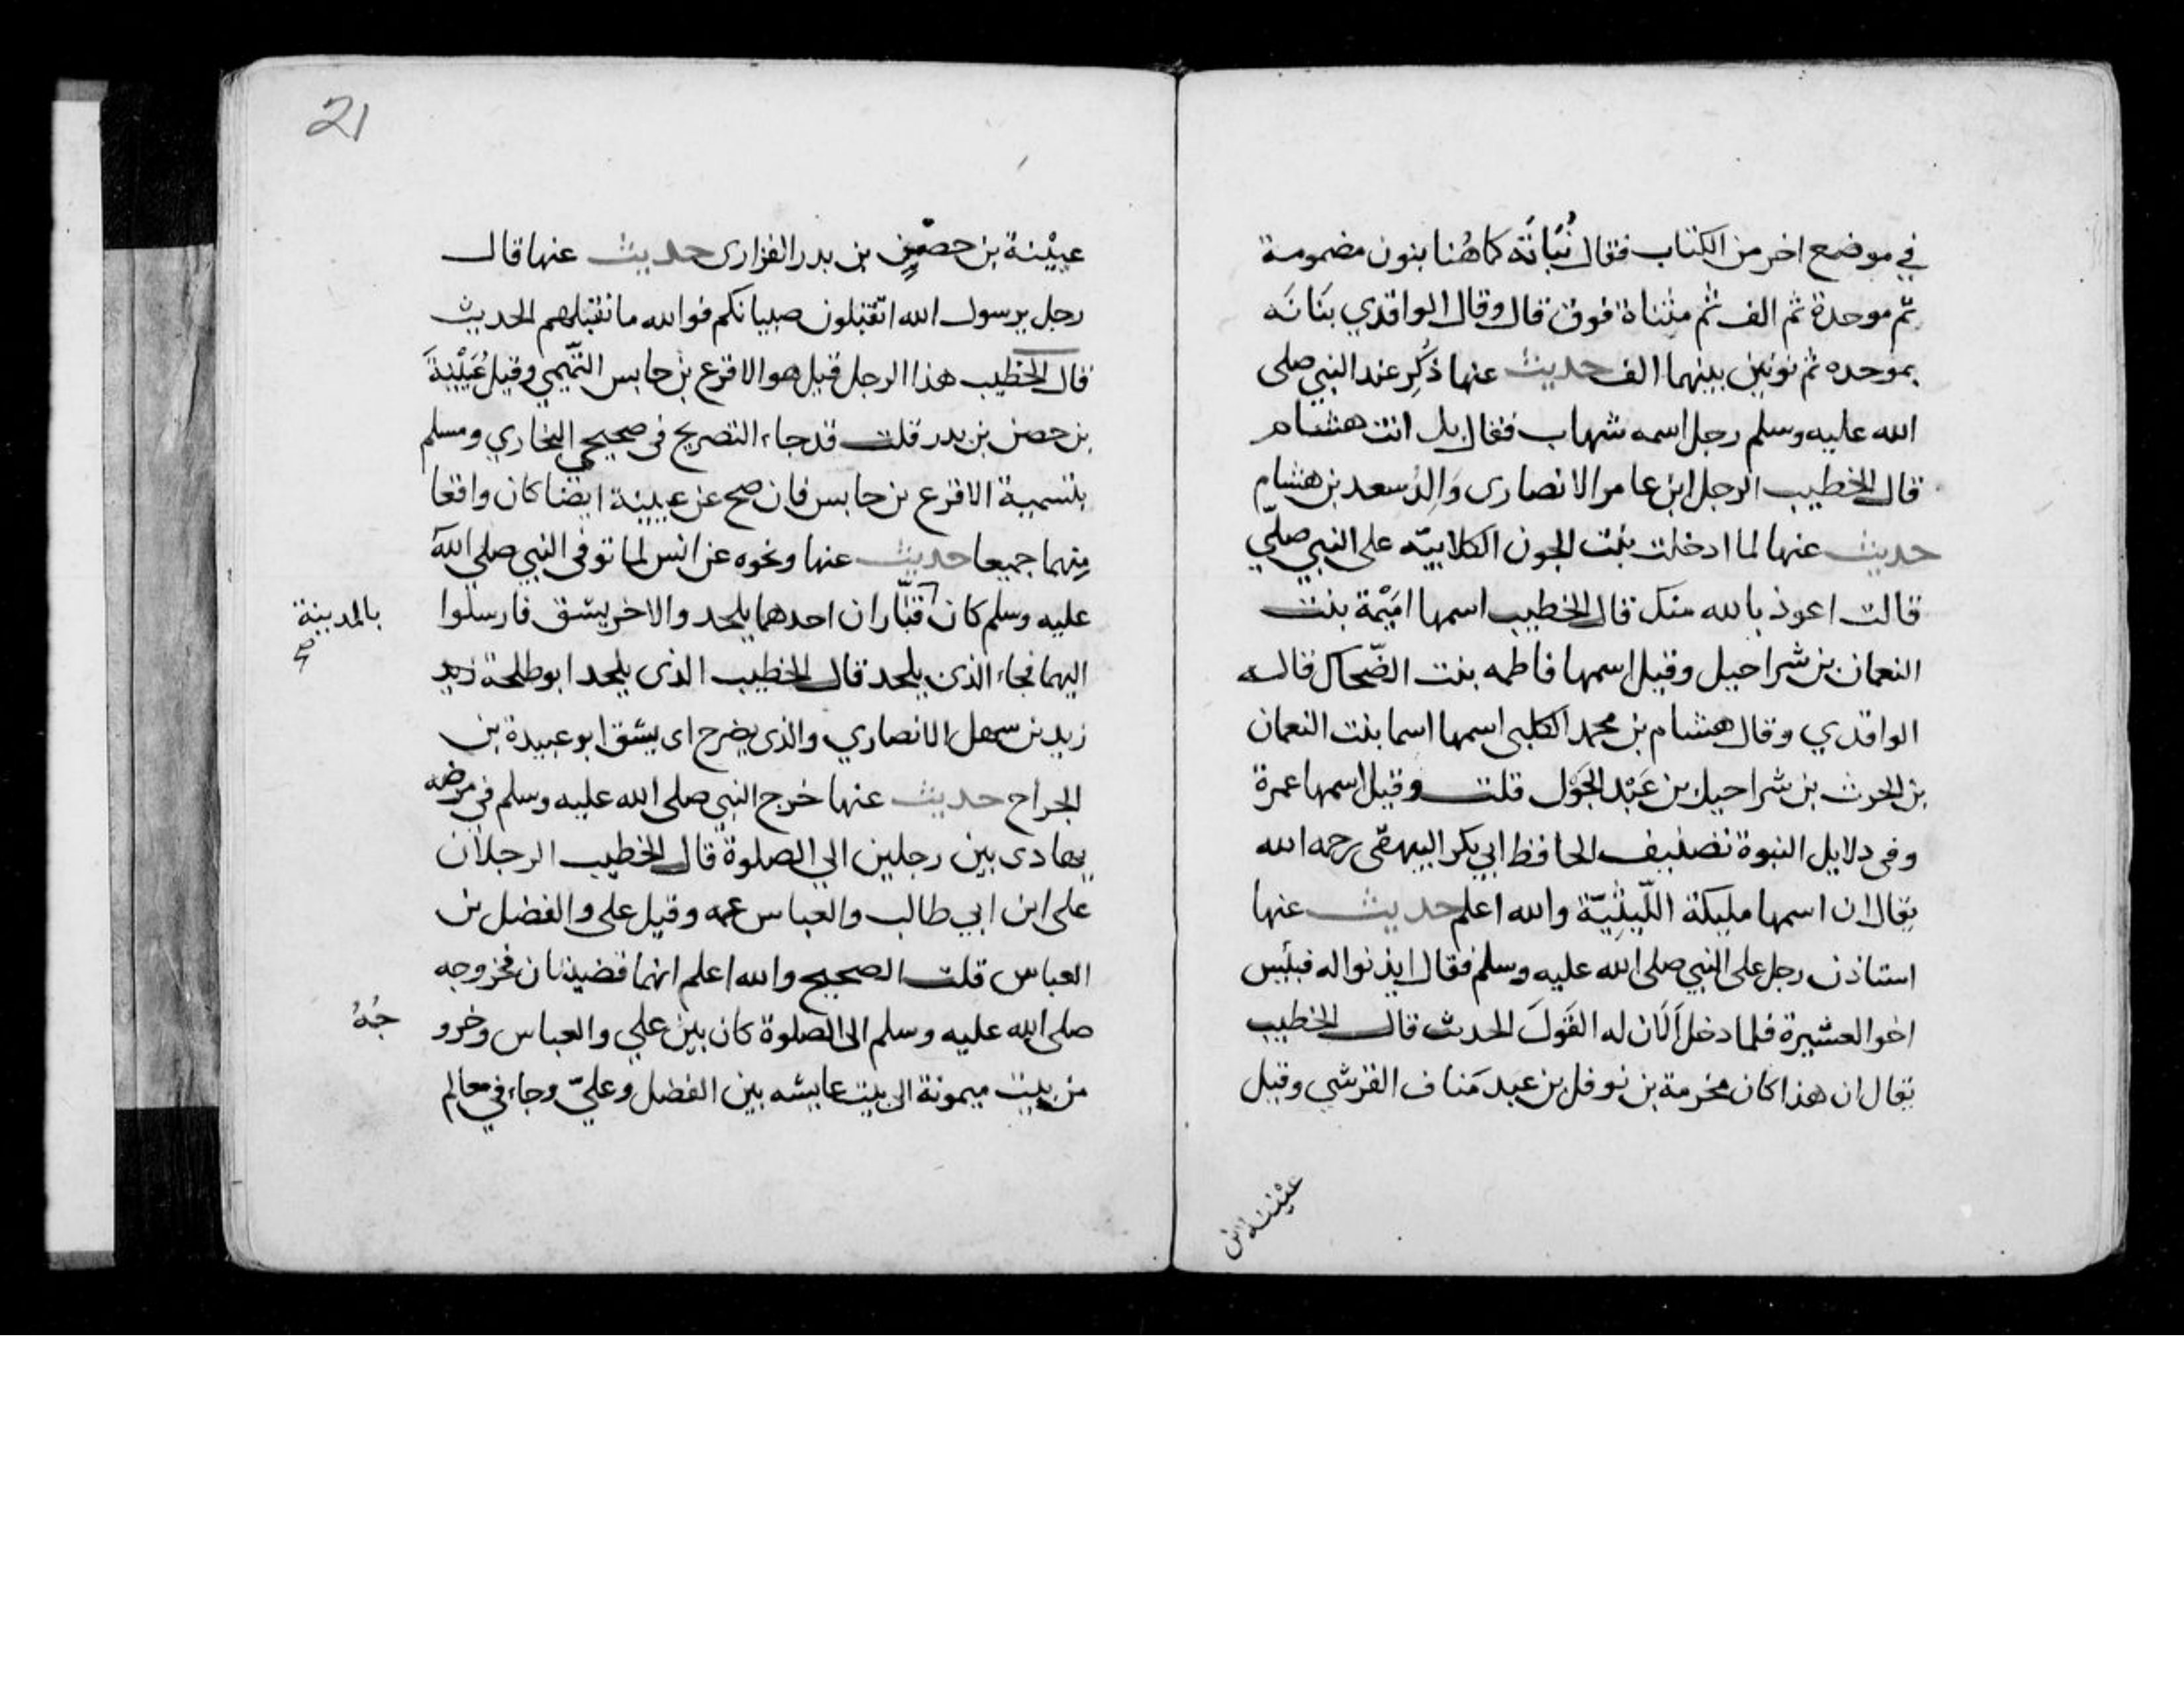 في موضع اخر من الكتاب فقال نُبَاتَة كما هُنا بنون مضمومة
ثم موحدة ثم الف ثم مثناة فوق قال وقال الواقدي بنَانَه
بموحده ثم نونين بينهما الف حديث عنها ذُكِر عند النبي صلى
الله عليه وسلم رجل اسمه شهاب فقال بل انت هشام
قال الخطيب الرجل ابن عامر الانصارى وَالِدُ سعد بن هشام
حديث عنها لما ادخلت بنت الجون الكلابيّه على النبي صلّي
قالت اعوذ بالله منك قال الخطيب اسمها امَيْمة بنت
النعمان بن شراحيل وقيل اسمها فاطمه بنت الضّحاك قاله
الواقدي وقال هشام بن محمد الكلبى اسمها اسما بنت النعمان
بن الحرث بن شراحيل بن عَبْد الجَوْل قلت وقيل اسمها عمرة
وفى دلايل النبوة تصنيف الحافظ ابي بكر البيهقى رحمه الله
يقال ان اسمها مليكة اللّيثِيّة والله اعلم حديث عنها
استاذن رجل على النبي صلى الله عليه وسلم فقال ايذنوا له فبئس
اخو العشيرة فلما دخل اَلَان له القَولَ الحدث قال الخطيب
يقال ان هذا كان مخرمة بن نوفل بن عبد مَناف القرشي وقيل
عيْينة بن
21
عييْنة بن حصْين بن بدر الفزارى حديث عنها قال
رجل يرسول الله اتقبلون صبيانكم فوالله ما نقبلهم الحديث
قال الخطيب هذا الرجل قيل هو الاقرع بن حابس التّميمي وقيل عُيَيْنَةَ
بن حصن بن بدر قلت قد جاء التصريح فى صحيحي البخاري ومسلم
بتسمية الاقرع بن حابس فان صح عن عيينة ايضا كان واقعا
منهما جميعا حديث عنها ونحوه عن انس لما توفى النبي صلى الله
عليه وسلم كان قبّاران احدهما يلحد والاخر يشق فارسلوا
بالمدينة صح
اليهما فجاء الذى يلحد قال الخطيب الذى يلحد ابو طلحة زيد
زيد بن سهل الانصاري والذى يضرح اى يشق ابو عبيدة بن
الجراح حديث عنها خرج النبي صلى الله عليه وسلم في مرضه
يهادى بين رجلين الي الصلوة قال الخطيب الرجلان
على ابن ابي طالب والعباس عمه وقيل على والفضل بن
العباس قلت الصحيح والله اعلم انهما قضيتان فخروجه
صلى الله عليه وسلم الى الصلوة كان بين علي والعباس وخرو
جُهُ
من بيت ميمونة الى بيت عايشه بين الفضل وعليّ وجاء في معالم